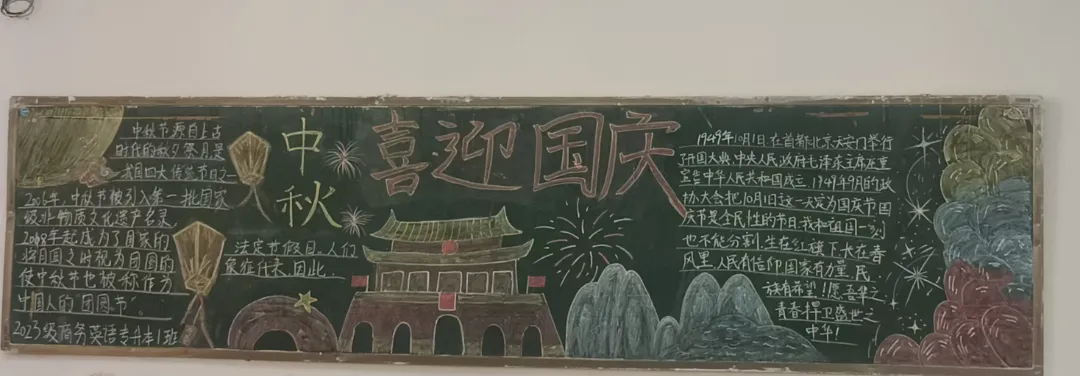 中秋节源自上古
时代的秋夕祭月是
我国四大传统节日之一
2006年,中秋节被列入第一批国家
级非物质文化遗产名录
2008年起成为了国家的
法定节假日,人们
象征什来,因此,
将月圆之时视为团圆的
使中秋节也被称作为
中国人的"团圆节".
2023级商务英语专升本1班
中秋
喜迎国庆
1949年10月1日,在首都北京天安门举行
了开国大典,中央人民政府毛泽东主席庄重
宣告中华人民共和国成立,1949年9月的政
协大会把10月1日这一天定为国庆节国
庆节是全民性的节日,我和祖国一刻
也不能分割,生在红旗下,长在春
风里,人民有信仰国家有力量,民
族有希望!愿吾辈之
青春捍卫盛世之
中华!